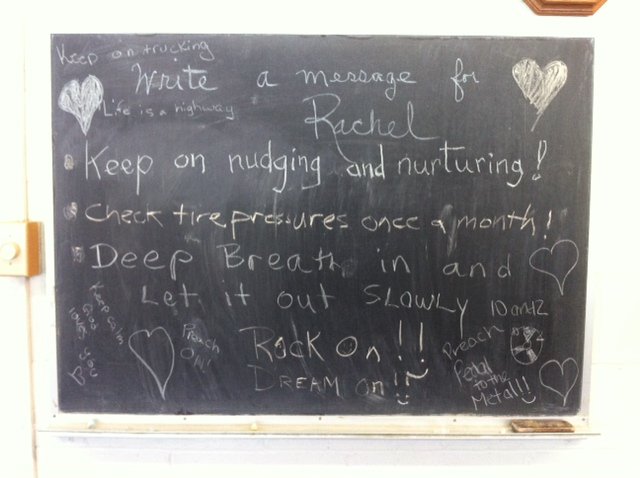 Keep on trucking
Write a message for
Life is a highway
Rachel
Keep on nudging and nurturing!
Check tire pressures once a month!
Deep Breath in and
Let it out SLOWLY
10 and 2
Keep Calm
God
loves you
Preach
ON!
Rock On!!
DREAM on!!
Preach
Pedal
to the
Metal!!